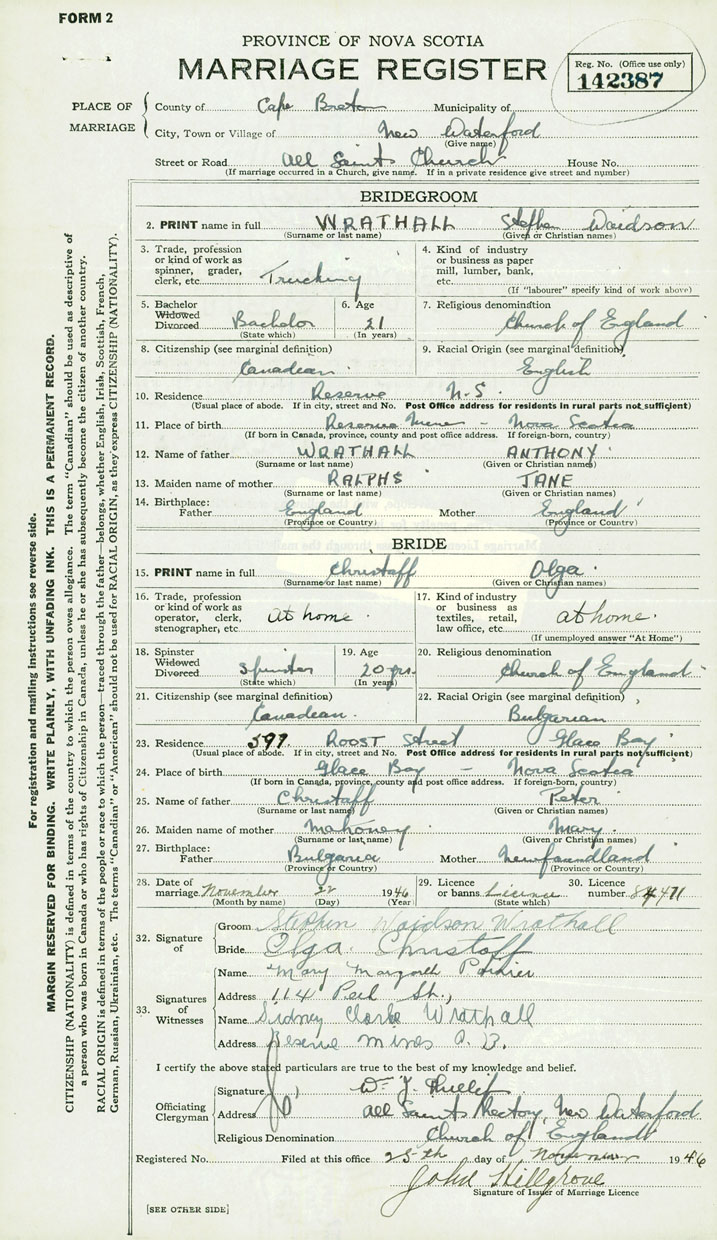 FORM 2
PROVINCE OF NOVA SCOTIA
MARRIAGE REGISTER
Reg. No. (Office use only)
142387
PLACE OF MARRIAGE
County of Cape Breton Municipality of
City, Town or Village of New Waterford
(Give name)
Street or Road All Saints Church House No.
(If marriage occurred in a Church, give name. If in a private residence give street and number)
BRIDEGROOM
2. PRINT name in full WRATHALL Stephen Waidson
(Surname or last name) (Given or Christian names)
3. Trade, profession or kind of work as spinner, grader, clerk, etc. Trucking
4. Kind of industry or business as paper mill, lumber, bank, etc.
(If "labourer" specify kind of work above)
5. Bachelor Widowed Divorced Bachelor
(State which)
6. Age 21
(In years)
7. Religious denomination Church of England
8. Citizenship (see marginal definition) Canadean
9. Racial Origin (see marginal definition) English
10. Residence Reserve N.S.
(Usual place of abode. If in city, street and No. Post Office address for residents in rural parts not sufficient)
11. Place of birth Reserve Mines - Nova Scotia
(If born in Canada, province, county and post office address. If foreign-born, country)
12. Name of father WRATHALL ANTHONY
(Surname or last name) (Given or Christian names)
13. Maiden name of mother RALPHS JANE
(Surname or last name) (Given or Christian names)
14. Birthplace: Father England Mother England
(Province or Country) (Province or Country)
BRIDE
15. PRINT name in full Christaff Olga
(Surname or last name) (Given or Christian names)
16. Trade, profession or kind of work as operator, clerk, stenographer, etc. At home.
17. Kind of industry or business as textiles, retail, law office, etc. at home.
(If unemployed answer "At Home")
18. Spinster Widowed Divorced Spinster
(State which)
19. Age 20 yrs.
(In years)
20. Religious denomination Church of England
21. Citizenship (see marginal definition) Canadean.
22. Racial Origin (see marginal definition) Bulgarian
23. Residence 597. ROOST Street Glace Bay
(Usual place of abode. If in city, street and No. Post Office address for residents in rural parts not sufficient)
24. Place of birth Glace Bay - Nova Scotia
(If born in Canada, province, county and post office address. If foreign-born, country)
25. Name of father Christaff Peter
(Surname or last name) (Given or Christian names)
26. Maiden name of mother Mahoney Mary.
(Surname or last name) (Given or Christian names)
27. Birthplace: Father Bulgaria Mother Newfoundland
(Province or Country) (Province or Country)
28. Date of marriage November 22 1946
(Month by name) (Day) (Year)
29. Licence or banns Licence
(State which)
30. Licence number
32. Signature of
Groom Stephen Waidson Wrathall
Bride Olga Christoff
33. Signatures of Witnesses
Name Mary Margaret
Address 114 St.,
Name Sidney Clarke Wrathall
Address Reserve Mines C. B.
I certify the above stated particulars are true to the best of my knowledge and belief.
Officiating Clergyman
Signature W.
Address All Saints Rectory, New Waterford
Religious Denomination Church of England
Registered No. Filed at this office 25th day of November 1946
John Hillgrove
Signature of Issuer of Marriage Licence
[SEE OTHER SIDE]
For registration and mailing instructions see reverse side.
MARGIN RESERVED FOR BINDING. WRITE PLAINLY, WITH UNFADING INK. THIS IS A PERMANENT RECORD.
CITIZENSHIP (NATIONALITY) is defined in terms of the country to which the person owes allegiance. The term "Canadian" should be used as descriptive of
a person who was born in Canada or who has rights of Citizenship in Canada, unless he or she has subsequently become the citizen of another country.
RACIAL ORIGIN is defined in terms of the people or race to which the person—traced through the father—belongs, whether English, Irish, Scottish, French,
German, Russian, Ukrainian, etc. The terms "Canadian" or "American" should not be used for RACIAL ORIGIN, as they express CITIZENSHIP (NATIONALITY).